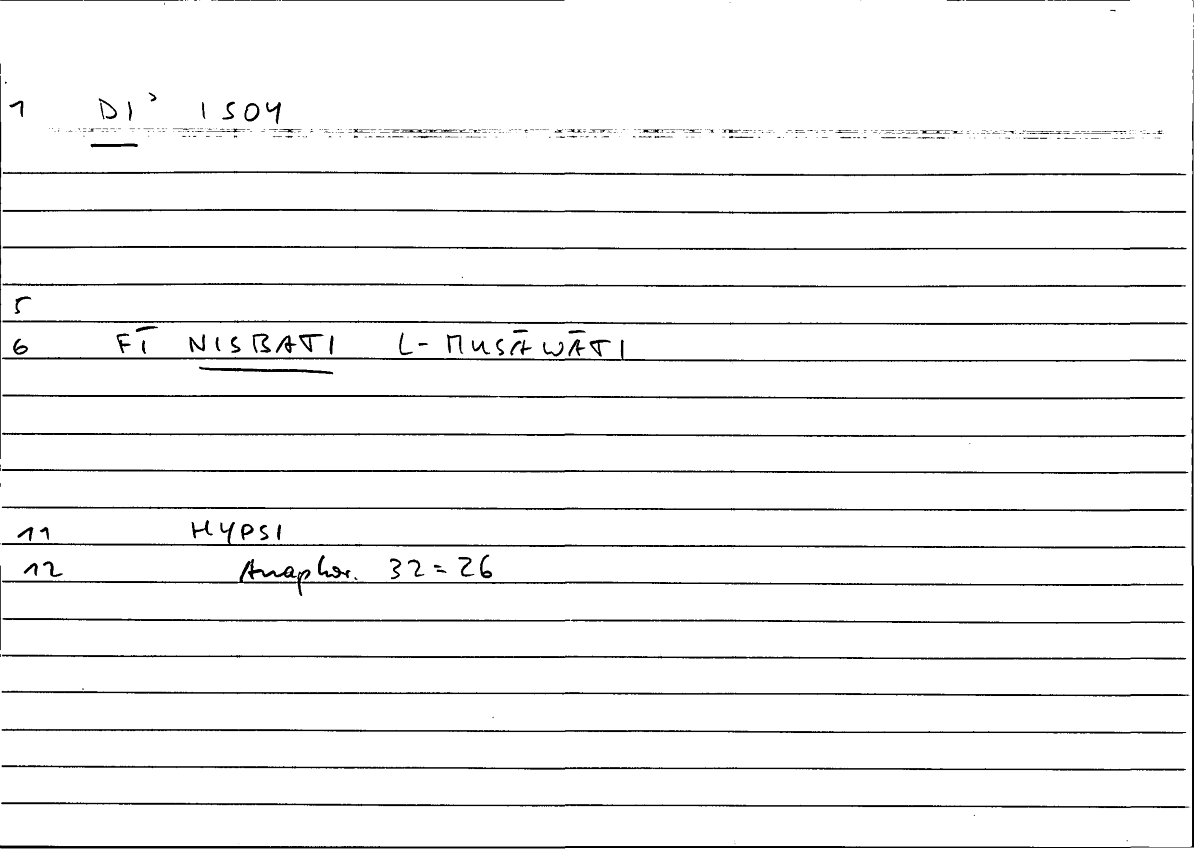 1 DI' ISOY
5
6 FĪ NISBATI L-MUSĀWĀTI
11 HYPSI
12 Anaphor. 32=26